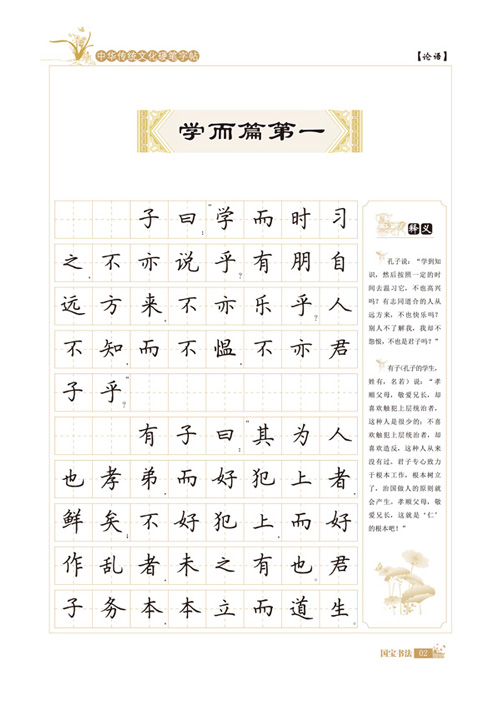 中华传统文化硬笔字帖
【论语】
学而篇第一
子曰：“学而时习
之，不亦说乎？有朋自
远方来，不亦乐乎？人
不知而不愠，不亦君
子乎？”
有子曰：“其为人
也孝弟，而好犯上者，
鲜矣；不好犯上，而好
作乱者，未之有也。君
子务本，本立而道生
释义
孔子说：“学到知
识，然后按照一定的时
间去温习它，不也高兴
吗？有志同道合的人从
远方来，不也快乐吗？
别人不了解我，我却不
怨恨，不也是君子吗？”
有子（孔子的学生，
姓有，名若）说：“孝
顺父母，敬爱兄长，却
喜欢触犯上层统治者，
这种人是很少的；不喜
欢触犯上层统治者，却
喜欢造反，这种人从来
没有过，君子专心致力
于根本工作，根本树立
了，治国做人的原则就
会产生。孝顺父母，敬
爱兄长，这就是‘仁’
的根本吧！”
国宝书法 02